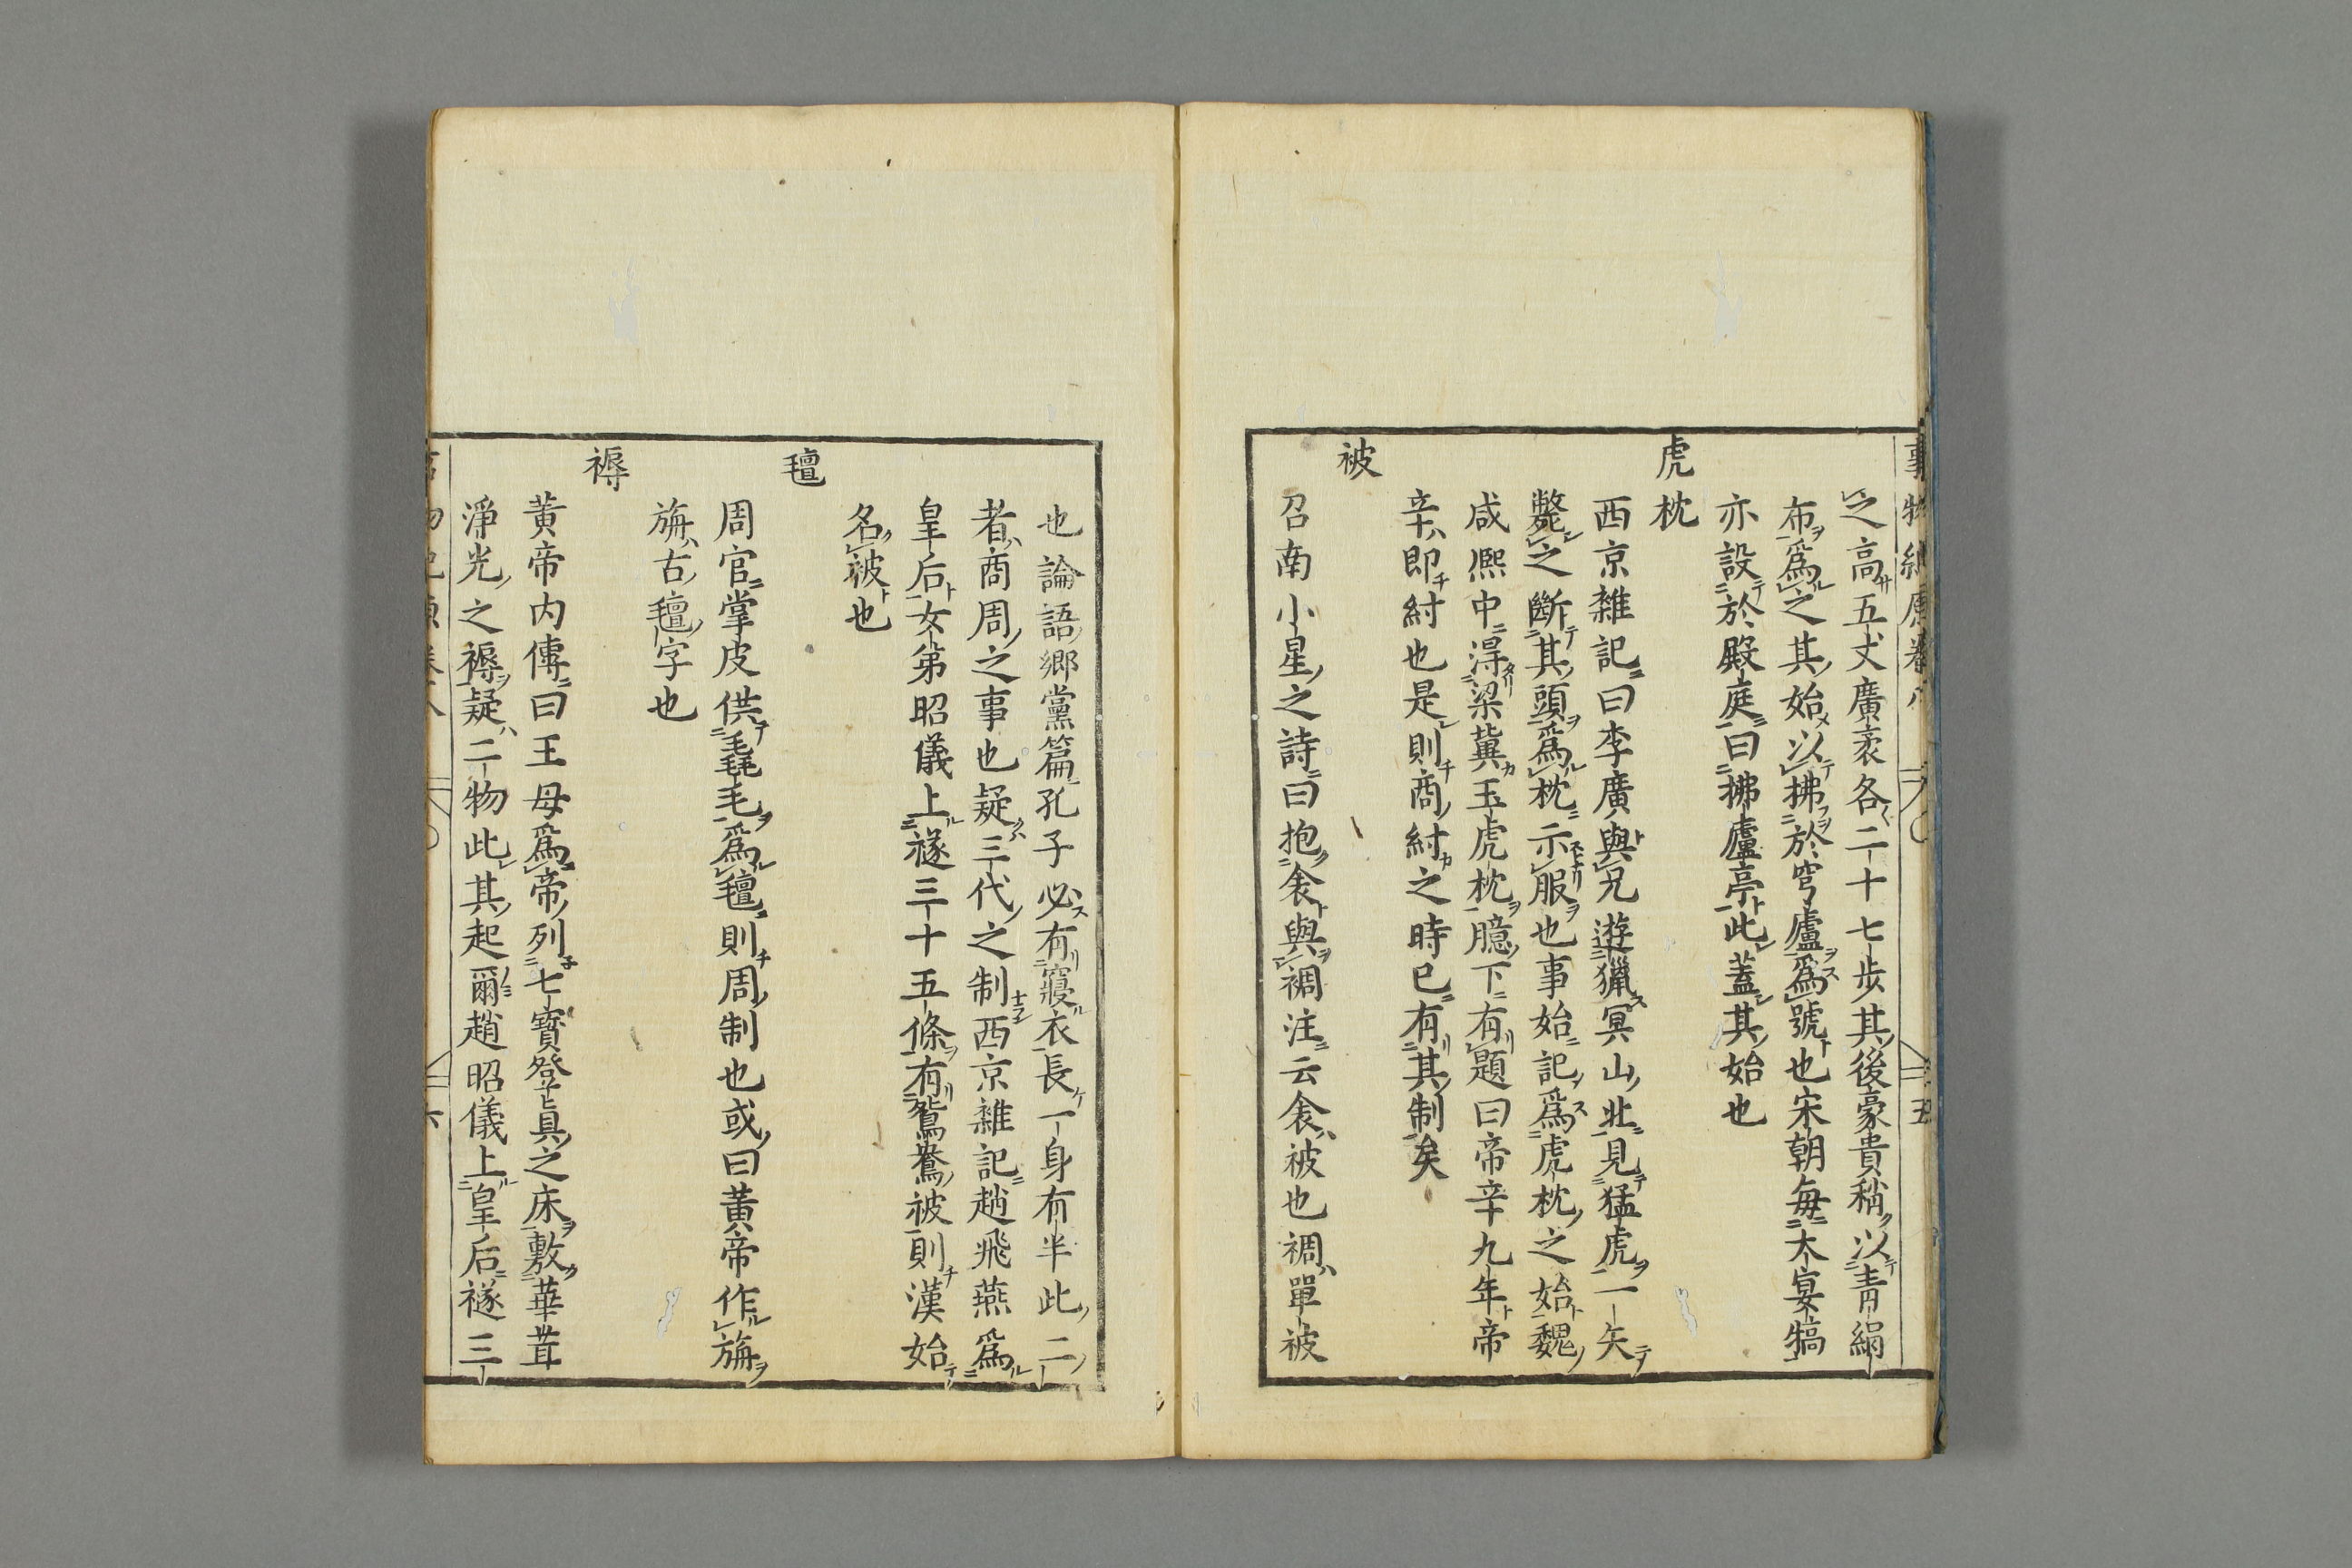 之高五丈廣袤各二十七步其後豪貴稍以青絹
布爲之其始以拂於穹廬爲號也宋朝每大宴犒
亦設於殿庭曰拂廬亭此蓋其始也
虎枕
西京雜記曰李廣與兄遊獵冥山北見猛虎一矢
斃之斷其頭爲枕示服也事始記爲虎枕之始魏
咸熙中淂梁冀玉虎枕臆下有題曰帝辛九年帝
辛即紂也是則商紂之時已有其制矣
被
召南小星之詩曰抱衾與裯注云衾被也裯單被
也論語鄉黨篇孔子必有寢衣長一身有半此二
者商周之事也疑三代之制西京雜記趙飛燕爲
皇后女弟昭儀上襚三十五條有鴛鴦被則漢始
名被也
氊
周官掌皮供毳毛爲氊則周制也或曰黃帝作旃
旃古氊字也
褥
黃帝内傳曰王母爲帝列七寶登眞之床敷華茸
淨光之褥疑二物此其起爾趙昭儀上皇后襚三